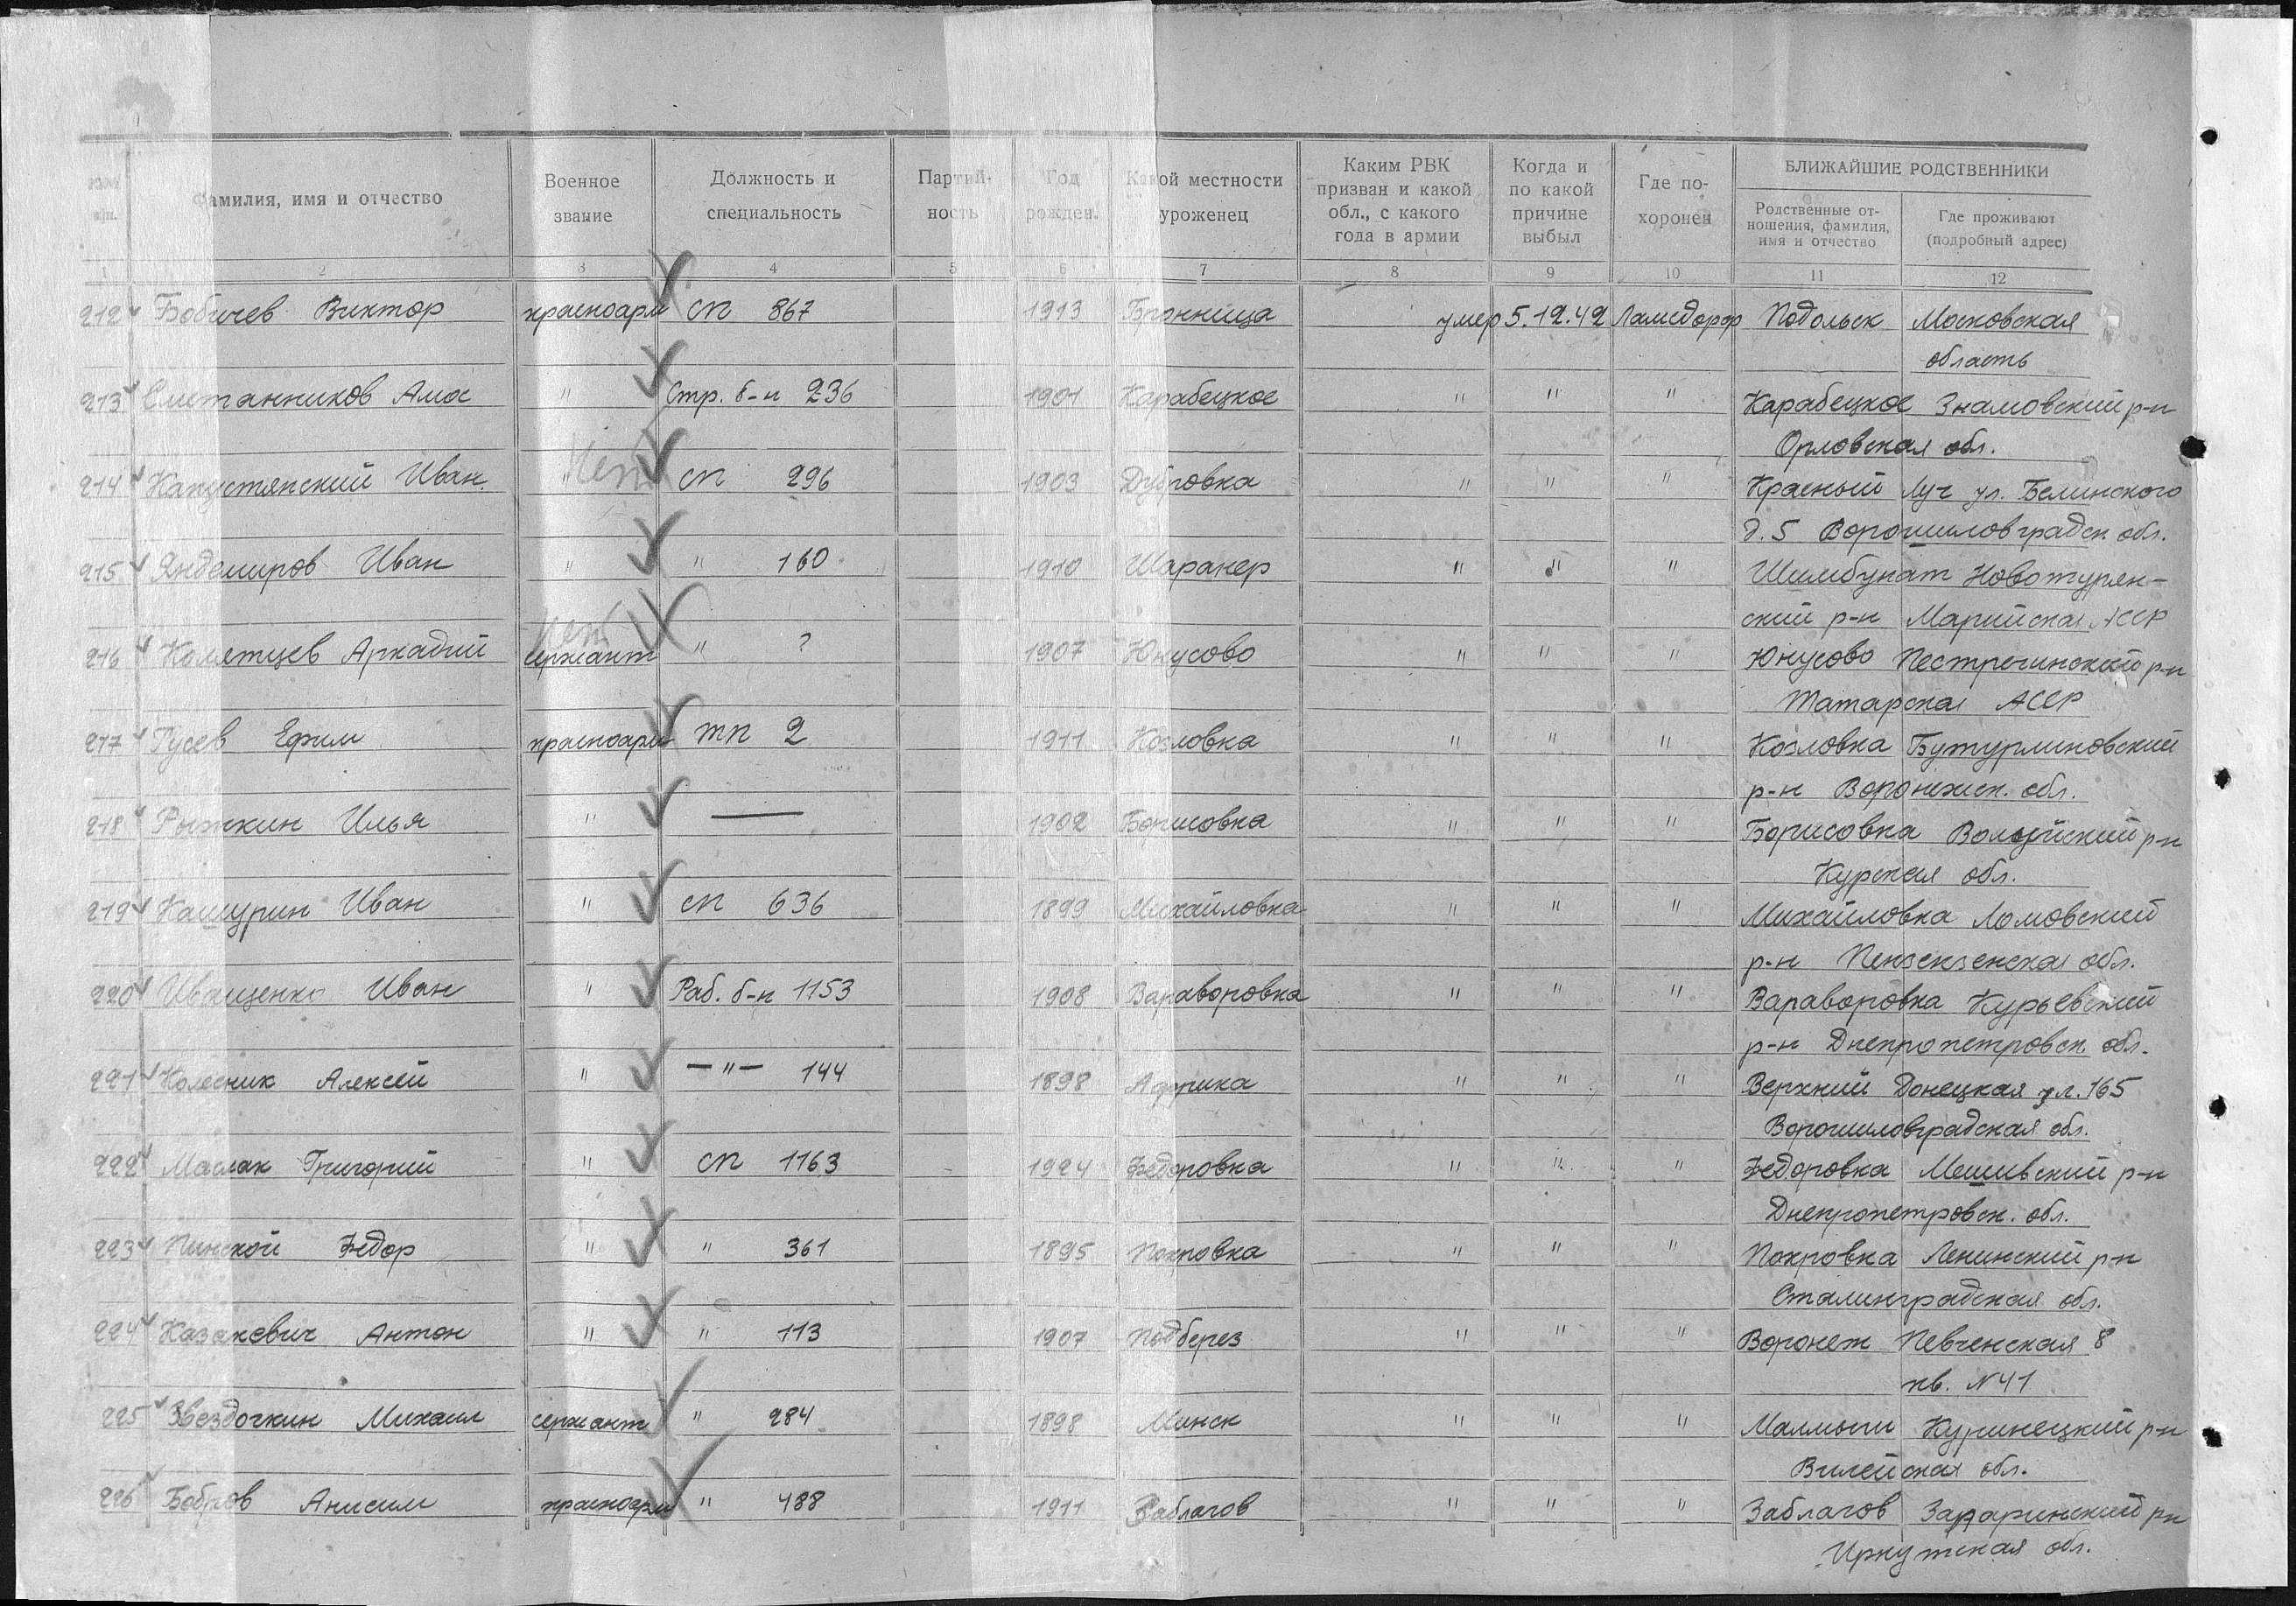 Фамилия, имя и отчество | Военное звание | Должность и специальность | Партийность | Год рожден. | Какой местности уроженец | Каким РВК призван и какой обл., с какого года в армии | Когда и по какой причине выбыл | Где похоронен | БЛИЖАЙШИЕ РОДСТВЕННИКИ
Родственные отношения, фамилия, имя и отчество | Где проживают (подробный адрес)
1 2 3 4 5 6 7 8 9 10 11 12
212 Бобичев Виктор красноарм сп 867 1913 Бронница умер 5.12.42 Ламсдорф Подольск Московская
область
213 Сметанников Ама " Стр. б-н 236 1901 Карабецкое " " " Карабецкое Знамовский р-н
Орловская обл.
Нет
214 Капустянский Иван. " сп 296 1903 Дубровка " " " Красный Луч ул. Белинского
д. 5 Ворошиловградск обл.
215 Яндемиров Иван " " 160 1910 Шаранер " " " Шимбунат Новотурян-
ский р-н Марийская АССР
Нет
216 Колятцев Аркадий сержант " ? 1907 Юнусово " " " Юнусово Пестречинский р-н
Татарская АССР
217 Гусев Ефим красноарм тп 2 1911 Козловка " " " Козловка Бутурлиновский
р-н Воронежск. обл.
218 Рыжкин Илья " — 1902 Борисовка " " " Борисовка Волыйский р-н
Курская обл.
219 Кашурин Иван " сп 636 1899 Михайловка " " " Михайловка Ломовский
р-н Пензензенская обл.
220 Иващенко Иван " Раб. б-н 1153 1908 Вараворовка " " " Вараворовка Курьевский
р-н Днепропетровск. обл.
221 Колесник Алексей " —"— 144 1898 Африка " " " Верхний Донецкая ул. 165
Ворошиловградская обл.
222 Маслак Григорий " сп 1163 1924 Федоровка " " " Федоровка Мешивский р-н
Днепропетровск. обл.
223 Пинской Федор " " 361 1895 Покровка " " " Покровка Ленинский р-н
Сталинградская обл.
224 Казакевич Антон " " 113 1907 Подберез " " " Воронеж Певченская 8
кв. N 41
225 Звездочкин Михаил сержант " 284 1898 Минск " " " Малмыги Куринецкий р-н
Вилейская обл.
226 Бобров Анисим красноарм " 488 1911 Заблагов " " " Заблагов Заларинский рн
Иркутская обл.